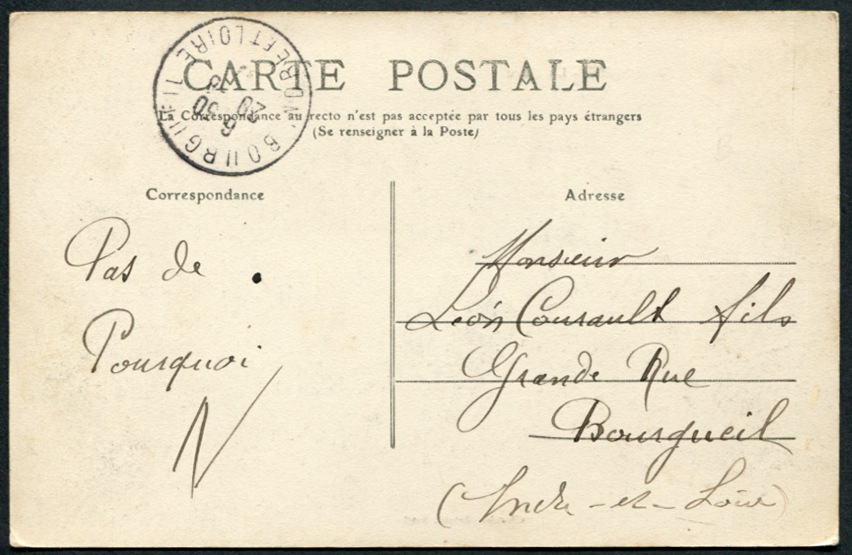 CARTE POSTALE
La Correspondance au recto n'est pas acceptée par tous les pays étrangers
(Se renseigner à la Poste)
Correspondance
Pas de .
Pourquoi
N
Adresse
Monsieur
Léon Courault fils
Grande Rue
Bourgueil
(Indre-et-Loire)
BOURGUEIL